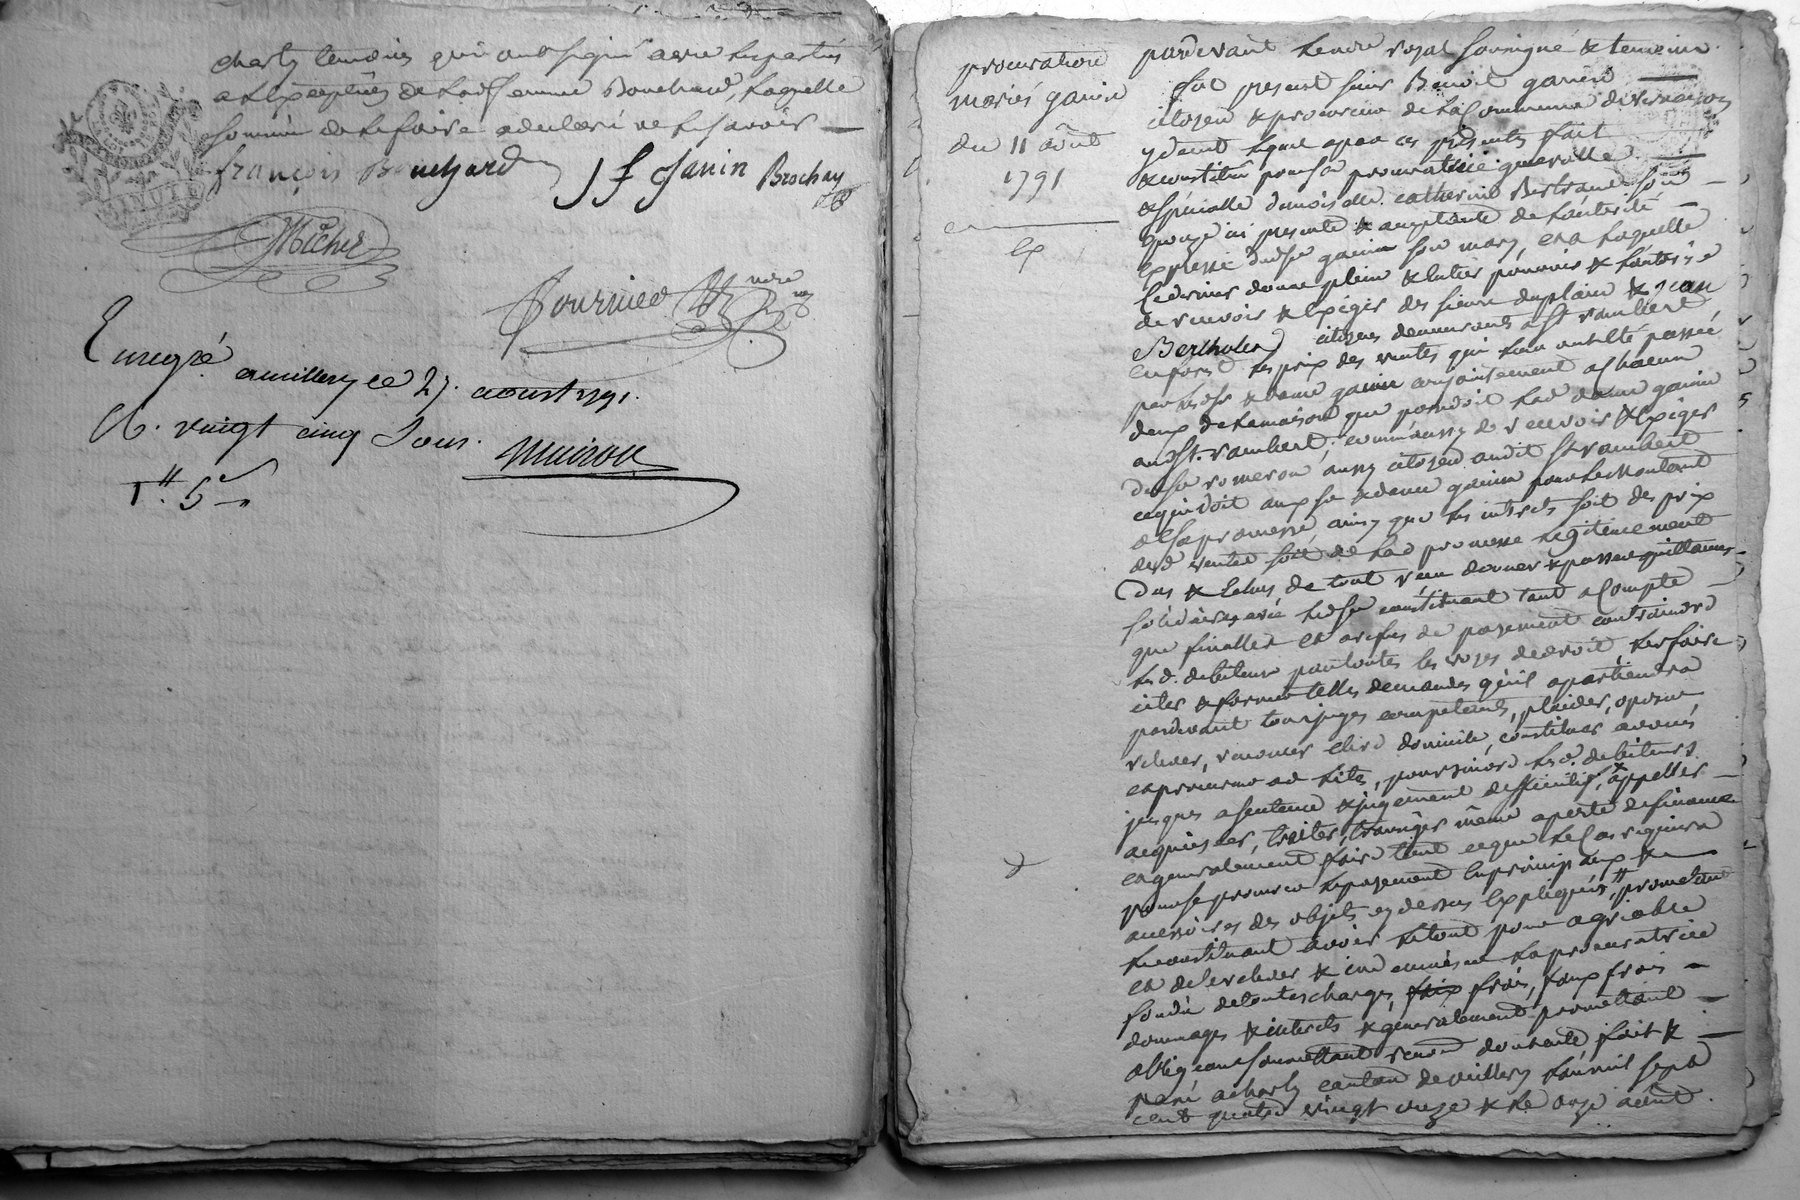 charly temoins qui ont signé avec les parties
a l'exception de lad femme Bouchard, laquelle
sommée de le faire a declaré ne le savoir
françois Bouchard J f Janin Brochay
Micher
fournier
Enregré amillery ce 27. aoust 1791.
R. vingt cinq Sous.
1 ₶. 5 s
procuration
mariés ganin
du 11 août
1791
ex
pardevant le nore royal soussigné & temoins
fut present sieur Benoit ganin
citoyen & procureur de la Commune de vernaison
y demt lequel a par ces presentes fait
& constitué pour sa procuratrice generalle
& spécialle demoiselle catherine Bertrand son
epouze ici presente & acceptante de l'autorité
expresse dudsr ganin son mary, et a laquelle
led sieur donne plein & entier pouvoir &
de recevoir & exéger des sieurs duplain & jean
Bertholet citoyens demeurants a St rambert
en forest les prix des ventes qui leur ont été passée
par lesdsr & dame ganin conjointement a chacun
deux de la maison que possedoit lad dame ganin
audSt. rambert, comm'aussy de recevoir & exéger
dusr romeron aussy citoyen audit St rambert
ce qui doit auxd sr & dame ganin pour le montant
de sa promesse ainsy que les interets soit des prix
desd ventes soit de lad promesse legitimement
Dus & Echus de tout reçu donner & passer quittances
solidaires avec ledsr constituant tant a Compte
que finalles et a refus de payement contraindre
les d. debiteurs par toutes les voyes de droit, les faire
citer & former telles demandes qu'il apartiendra
pardevant tous juges competents, plaider, oposer
relever, renoncer elire domicile, constituer avoués
et procureur ad lites, poursuivre les d. debiteurs
jusques a sentence & jugement deffinitif, appeller
acquiescer, traiter, transiger même a perte de finance
et generalement faire tout ce que le Cas requiera
pour se procurer le payement en principaux &
accessoires des objets cy dessus Expliqués, promettant
le constituant avoir le tout pour agréable
et de relever & indemniser la procuratrice
fondée de toutes charges, frais, faux frais
dommages & interets & generalement promettant
obligeant soumettant renonc dont acte fait &
passé a charly canton de millery l'an mil sept
cent quatre vingt onze & le onze août.